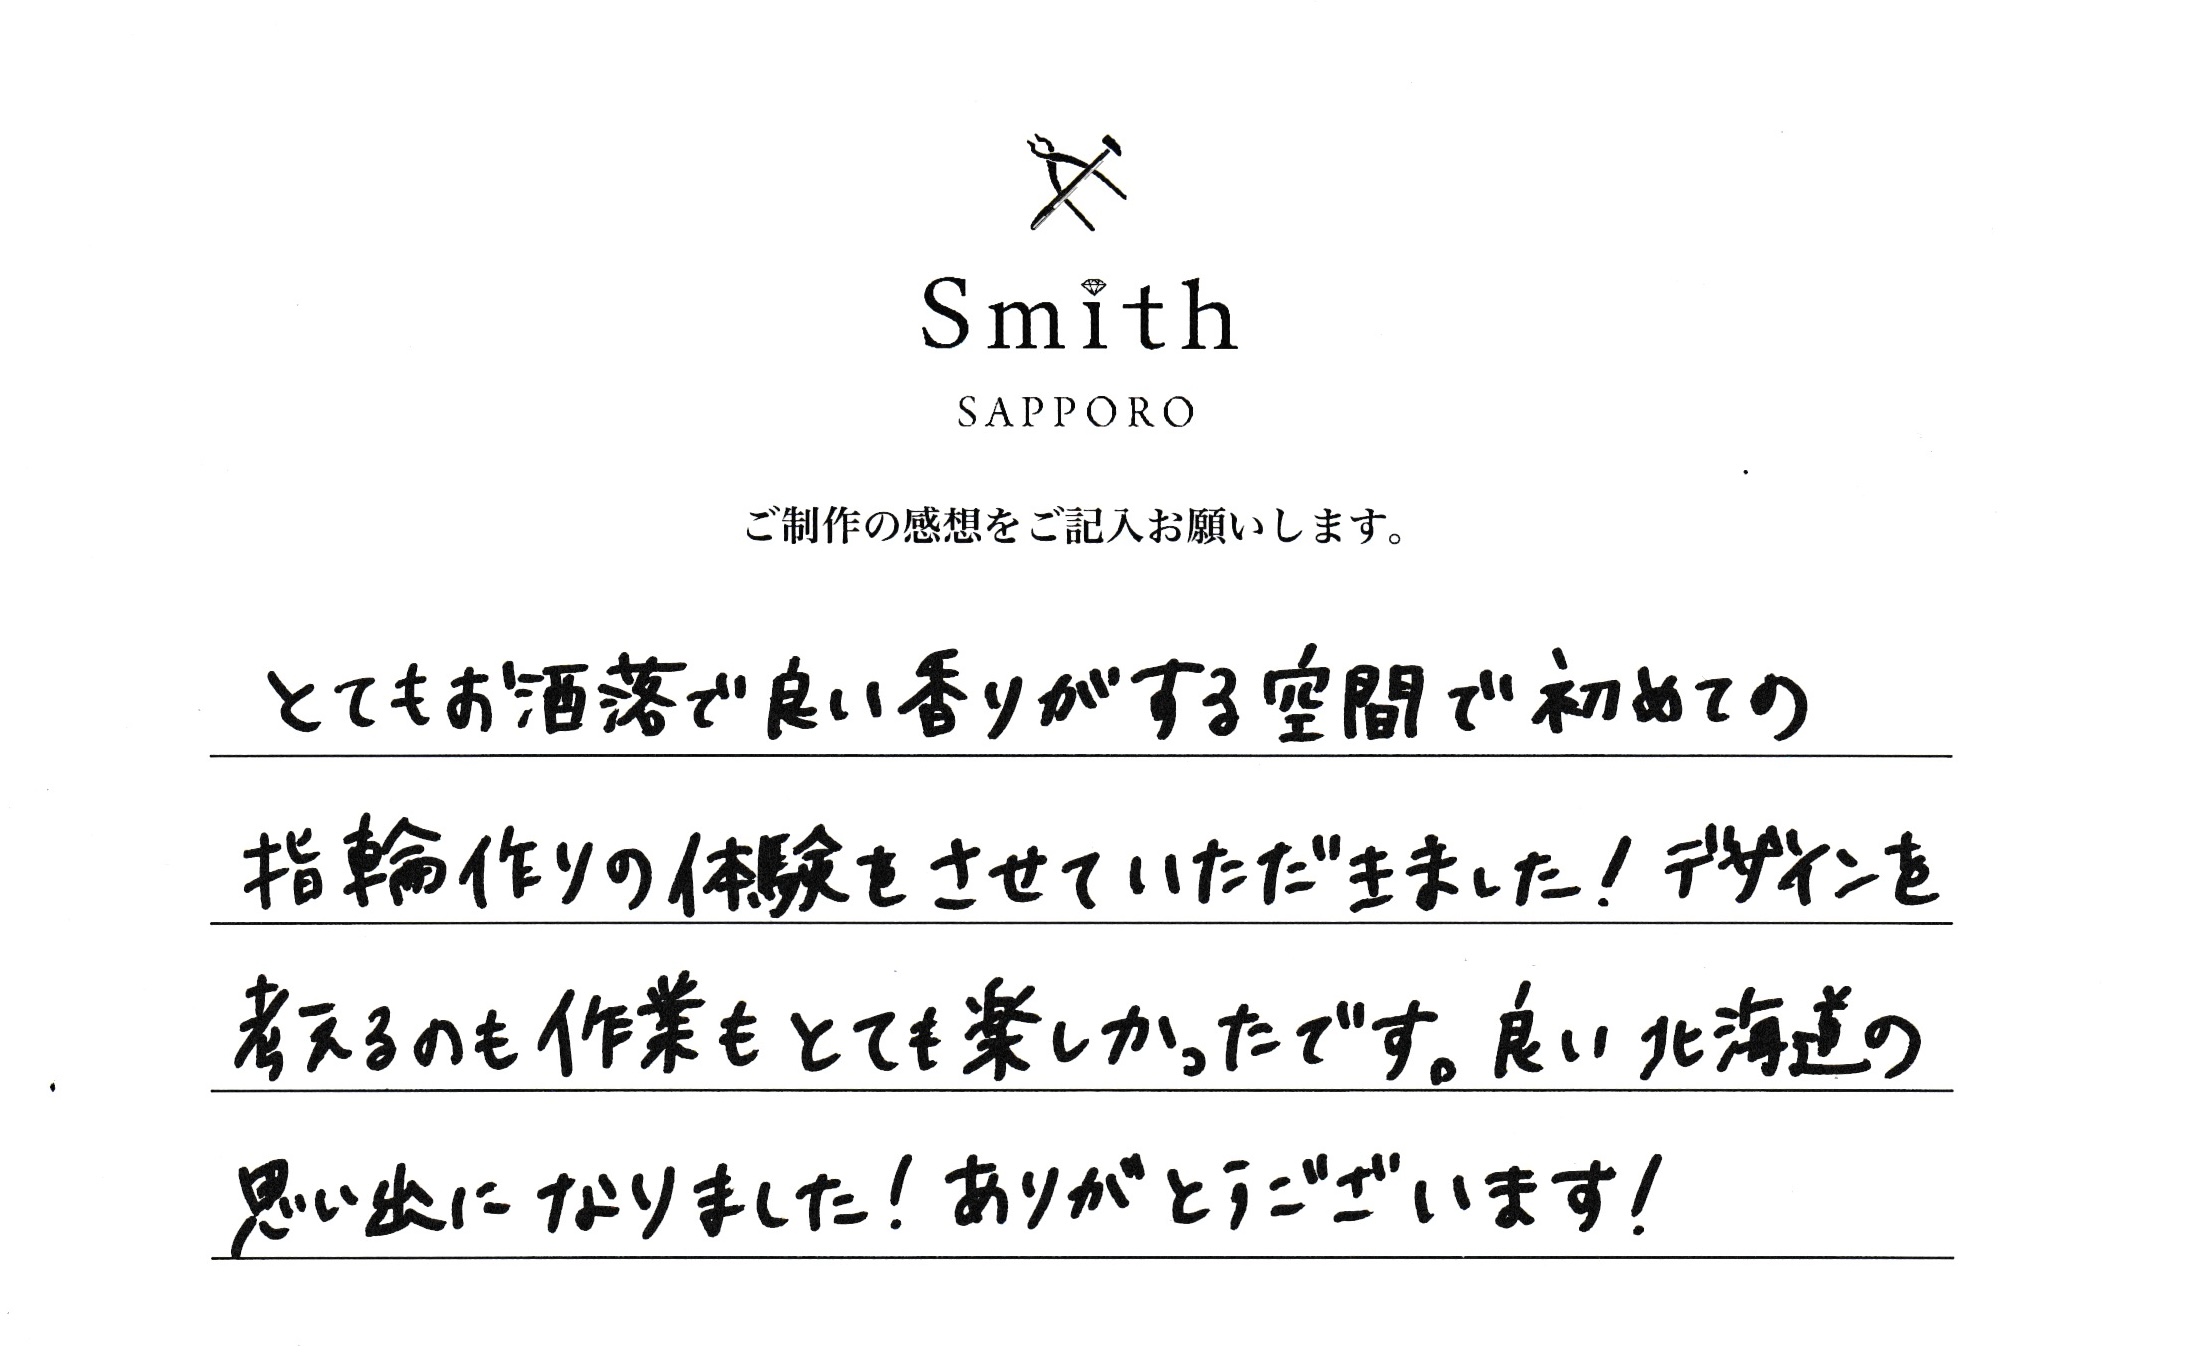 Smith
SAPPORO
ご制作の感想をご記入お願いします。
とてもお洒落で良い香りがする空間で初めての
指輪作りの体験をさせていただきました！デザインを
考えるのも作業もとても楽しかったです。良い北海道の
思い出になりました！ありがとうございます！